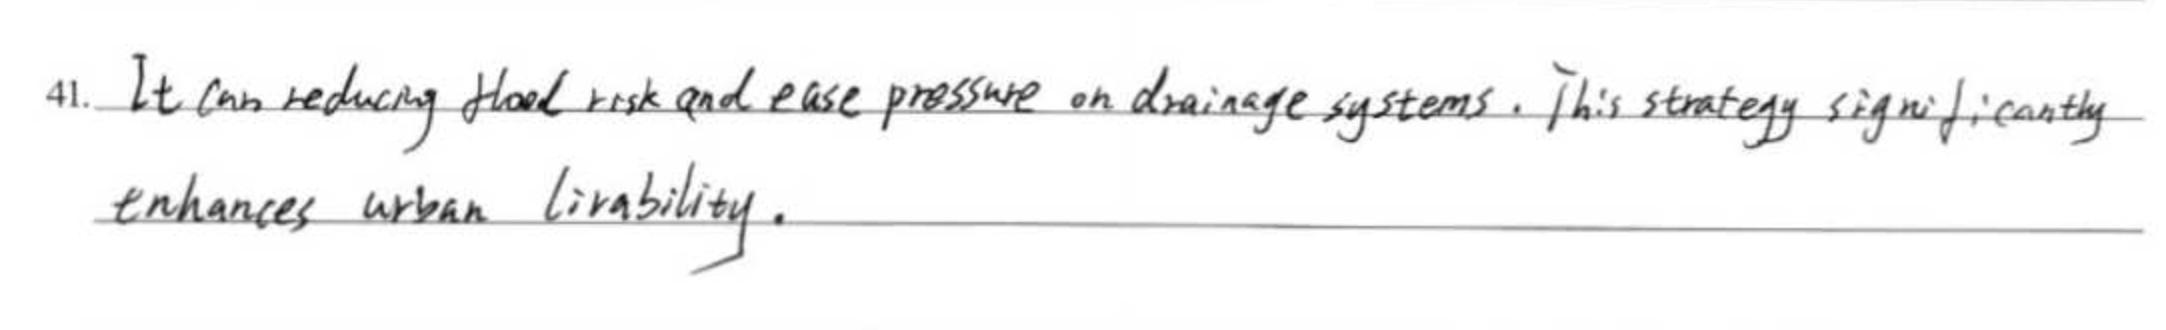 41. It can reducing flood risk and ease pressure on drainage systems. This strategy significantly
enhances urban livability.